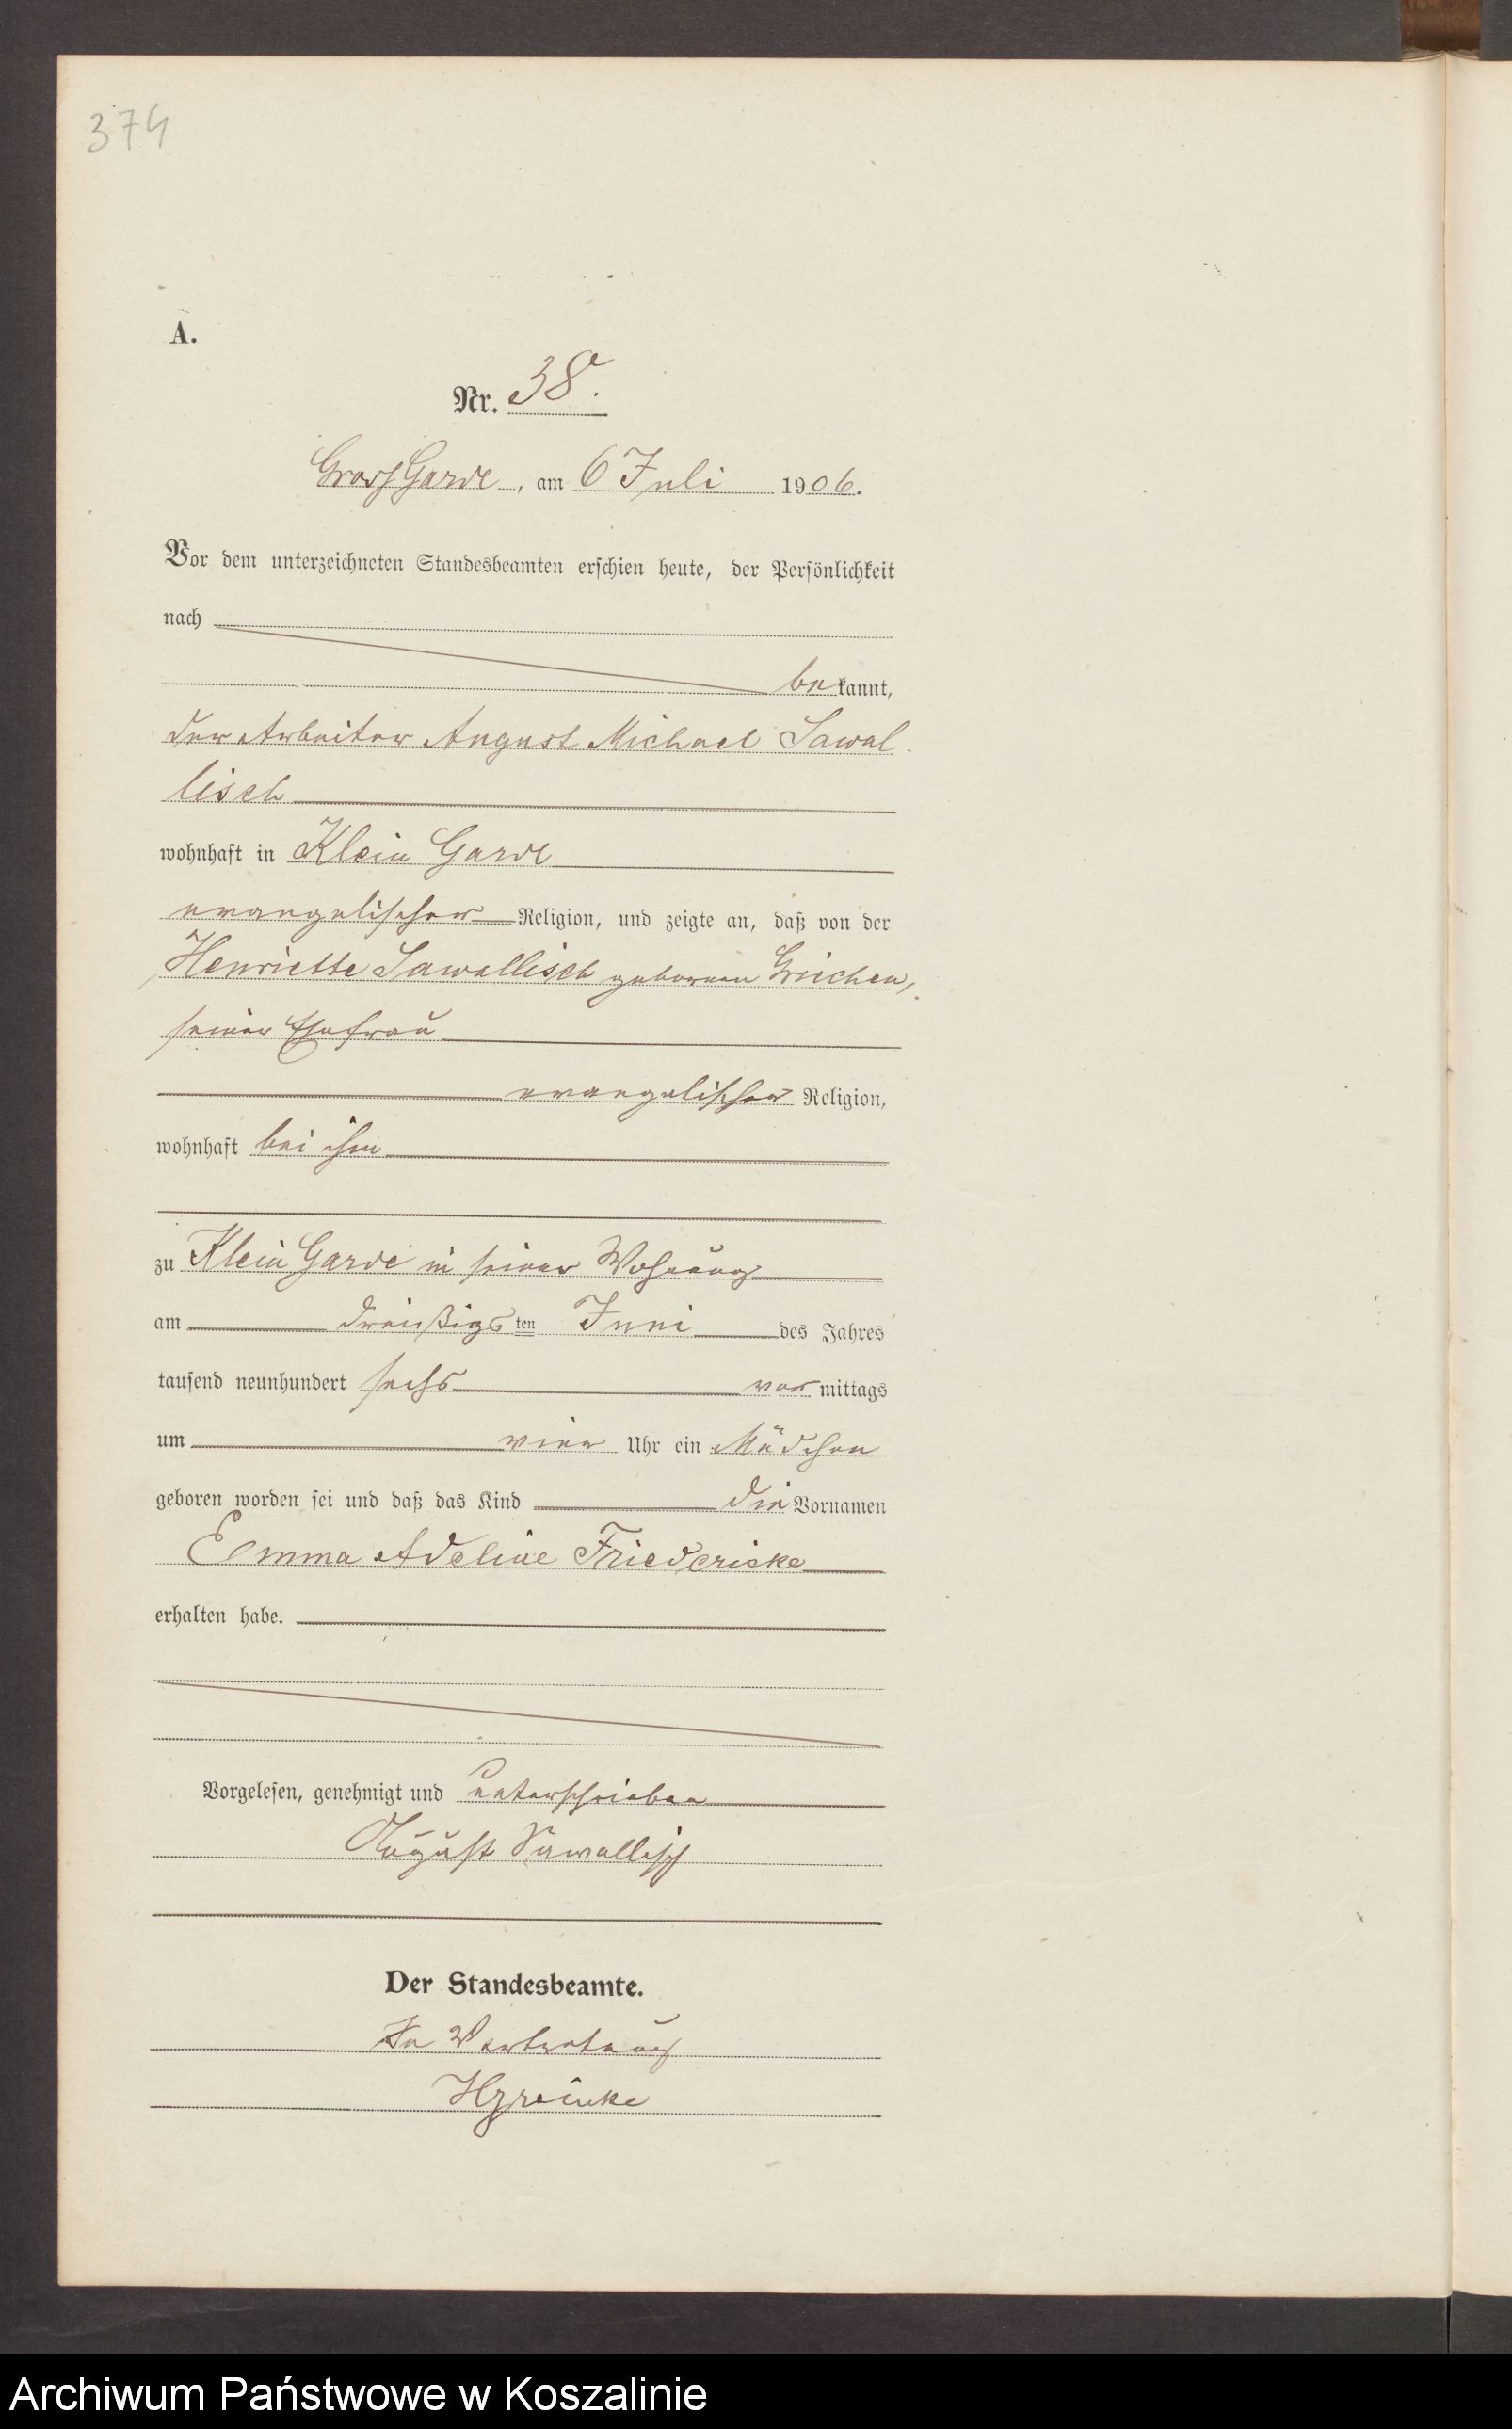 374
A.
Nr. 38.
Gross Garde, am 6 Juli 1906.
Vor dem unterzeichneten Standesbeamten erschien heute, der Persönlichkeit
nach
bekannt,
der Arbeiter August Michael Sawal
lisch
wohnhaft in Klein Garde
evangelischer Religion, und zeigte an, daß von der
Henriette Sawallisch geborenen
seiner Ehefrau
evangelischer Religion,
wohnhaft bei ihm
zu Klein Garde in seiner Wohnung
am dreißigsten Juni des Jahres
tausend neunhundert sechs vormittags
um vier Uhr ein Mädchen
geboren worden sei und daß das Kind die Vornamen
Emma Adeline Friederieke
erhalten habe.
Vorgelesen, genehmigt und unterschrieben
August Sawallisch
Der Standesbeamte.
In Vertretung
Archiwum Państwowe w Koszalinie